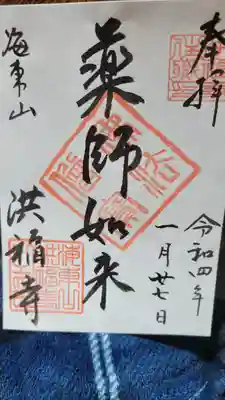 奉拝
令和四年
一月廿七日
薬師如来
海東山
洪福寺
海東山
洪福寺